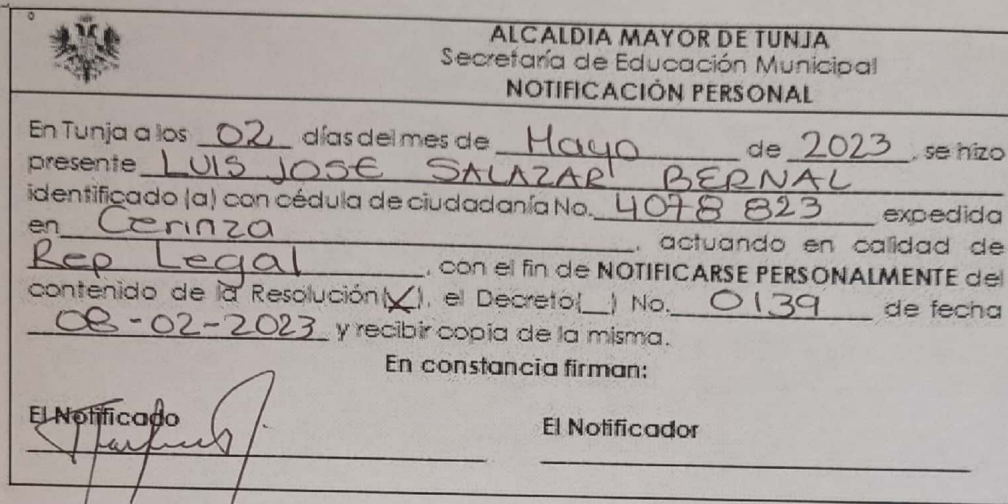 ALCALDIA MAYOR DE TUNJA
Secretaría de Educación Municipal
NOTIFICACIÓN PERSONAL
En Tunja a los 02 días del mes de Mayo de 2023, se hizo
presente LUIS JOSE SALAZAR BERNAL
identificado (a) con cédula de ciudadanía No. 4078 823 expedida
en Cerinza, actuando en calidad de
Rep Legal, con el fin de NOTIFICARSE PERSONALMENTE del
contenido de la Resolución(X), el Decreto(__) No. 0139 de fecha
08-02-2023 y recibir copia de la misma.
En constancia firman:
El Notificado
El Notificador